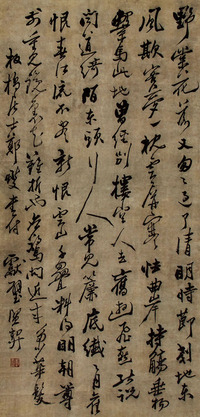 野棠花落又匆匆過了清明時節剗地東
風欺客夢一枕雲屏寒怯曲岸持觴垂楊
繫馬此地曾經別樓空人去舊遊飛燕能說
聞道綺陌東頭行人常見簾底纖纖月舊
恨春江流不盡新恨雲山千疊料得明朝尊
前重見鏡裏花難折也應驚問近來多少華髮
板橋居士鄭燮書付